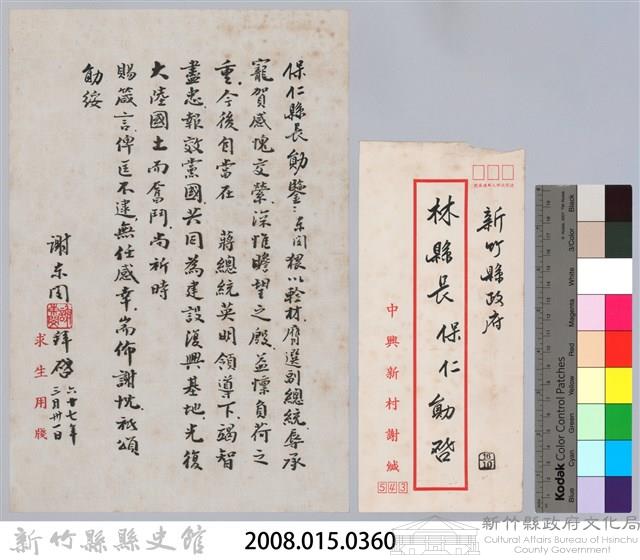 保仁縣長勛鑒、東閔猥以輇材、膺選副總統辱承
寵賀、感愧交縈、深惟瞻望之殷、益懍負荷之
重、今後自當在 蔣總統英明領導下、竭智
盡忠、報效黨國、共同為建設復興基地、光復
大陸國土而奮鬥、尚祈時
賜箴言、俾匡不逮、無任感幸、耑佈謝忱、祗頌
勛綏
謝東閔 拜啓
六十七年
三月卅一日
求生用牋
新竹縣政府
林縣長 保仁 勛啓
中興新村謝緘
543
新竹縣縣史館
2008.015.0360
新竹縣政府文化局
Cultural Affairs Bureau of Hsinchu
County Government
Kodak Color Control Patches
Blue
Cyan
Green
Yellow
Red
Magenta
White
3/Color
Black